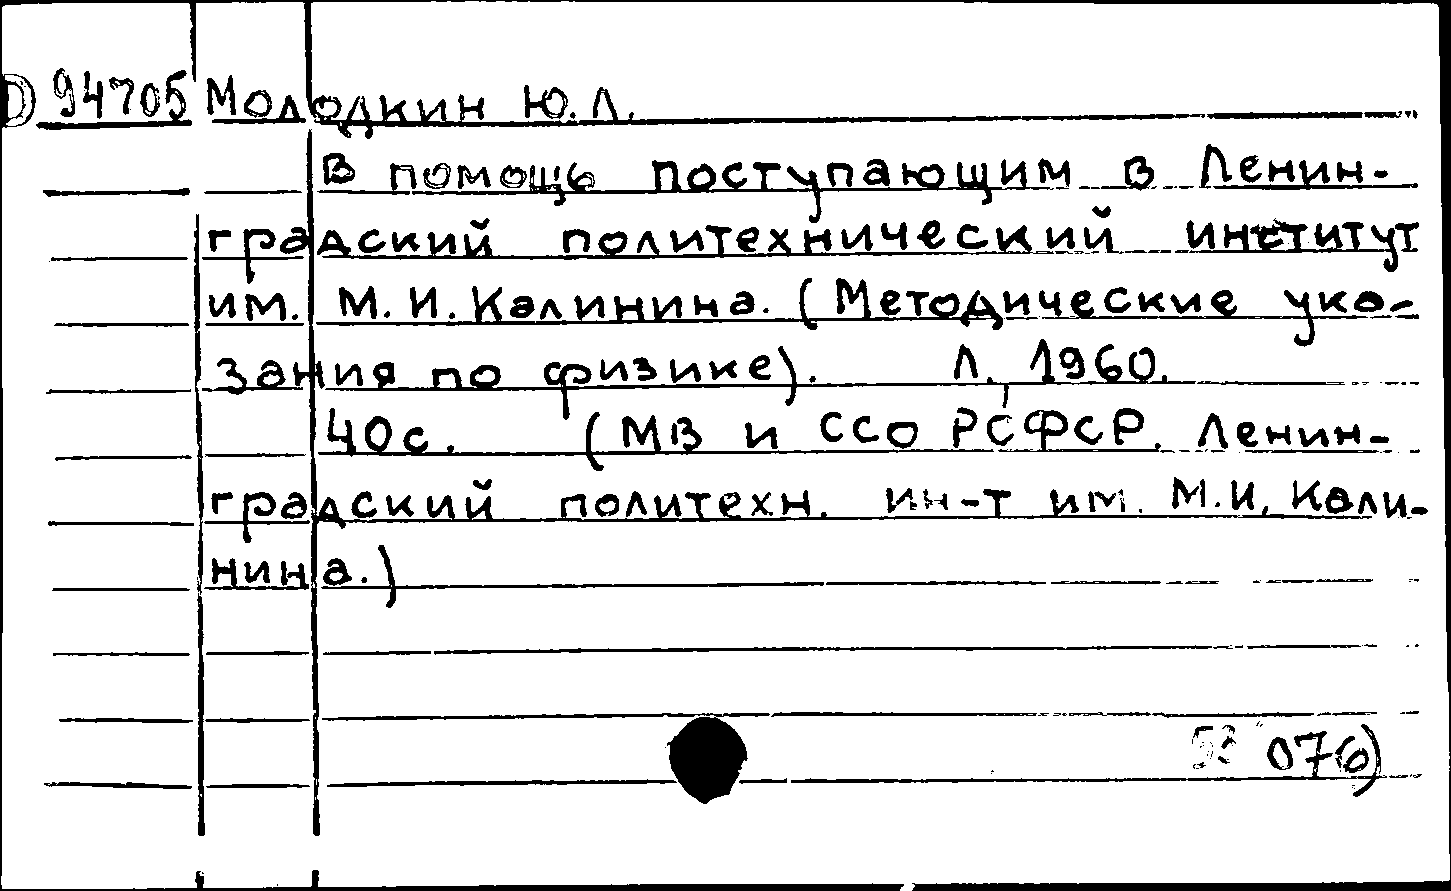 D 94705 Молодкин Ю.Л.
В помощь поступающим в Ленин-
градский политехнический институт
им. М.И. Калинина. (Методические ука-
зания по физике). Л., 1960.
40с. (МВ и ССО РСФСР. Ленин-
градский политехн. ин-т им. М.И. Кали-
нина.)